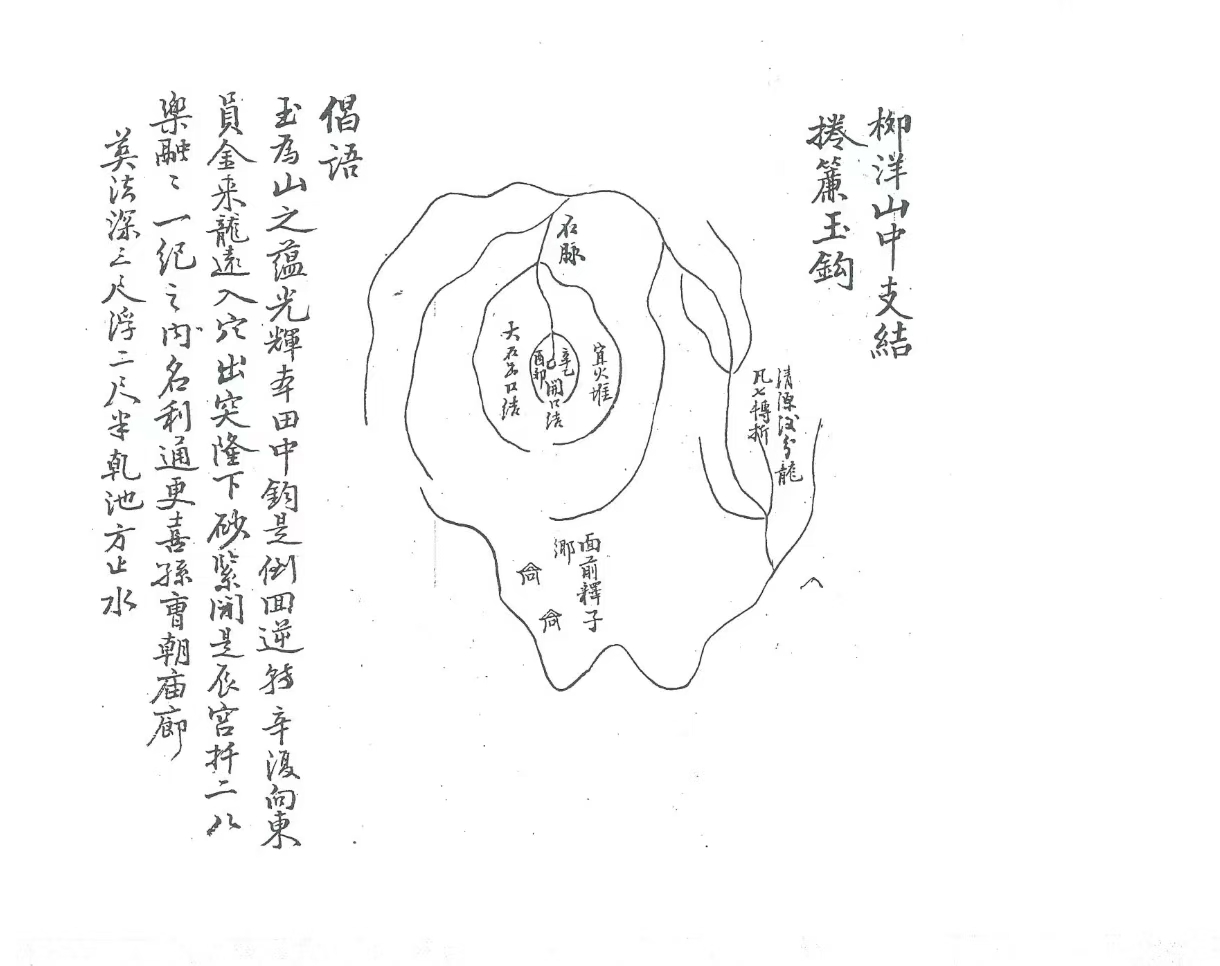 柳洋山中支結
捲簾玉鈎
清源後分龍
凡七轉折
石脈
宜火堆
辛乙
開口結
酉卯
大石出口結
面前譯子
鄉
偈語
玉為山之蘊光輝本田中鈎是倒回逆轉辛復向東
員金来龍遠入穴出突隆下砂緊閉是辰宮扦二八
樂融〻一紀之内名利通更喜孫曹朝庙廊
葬法深三尺浮二尺半乹池方止水